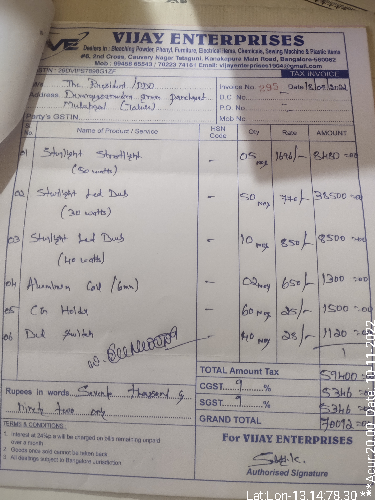 VIJAY ENTERPRISES
Dealers in : Bleaching Powder, Phenyl, Furniture, Electrical Items, Chemicals, Sewing Machine & Plastic Items
#6, 2nd Cross, Cauvery Nagar Talaguni, Kanakapura Main Road, Bangalore-560062
Email: vijayenterprises1904@gmail.com
TAX INVOICE
The President / PDO
Invoice No. 295 Date
Address gram panchayat
D.C No.
P.O. No.
Party's GSTIN.
Mob No
No. Name of Product / Service HSN Code Qty Rate AMOUNT
01 Starlight Streetlight - 05 nos 1696/- 8480=00
(50 watts)
02 Starlight Led Bulb - 50 nos 770/- 38500=00
(30 watts)
03 Starlight Led Bulb - 10 nos 850/- 8500=00
(40 watts)
04 Aluminum Coil (6mm) - 02 nos 650/- 1300=00
05 Holder - 60 nos 25/- 1500=00
06 - 40 nos 28/- 1120=00
TOTAL Amount Tax 59400=00
CGST 9 % 5346=00
SGST 9 % 5346=00
GRAND TOTAL 70092=00
Rupees in words Seventy thousand &
Ninety two only
TERMS & CONDITIONS :
1. Interest at 24% p.a will be charged on bills remaining unpaid
over a month
2. Goods once sold cannot be taken back
3. All desputes subject to Bangalore Jurisdiction.
For VIJAY ENTERPRISES
Authorised Signature
Lat:Lon-13.1478.30 ***Acur 20.00 Date: 10-11-2022